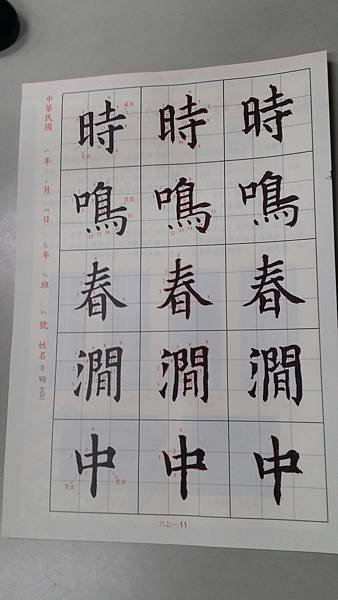 時 時 時
鳴 鳴 鳴
春 春 春
澗 澗 澗
中 中 中
中華民國 年 月 日 年 班 號 姓名
六上-11